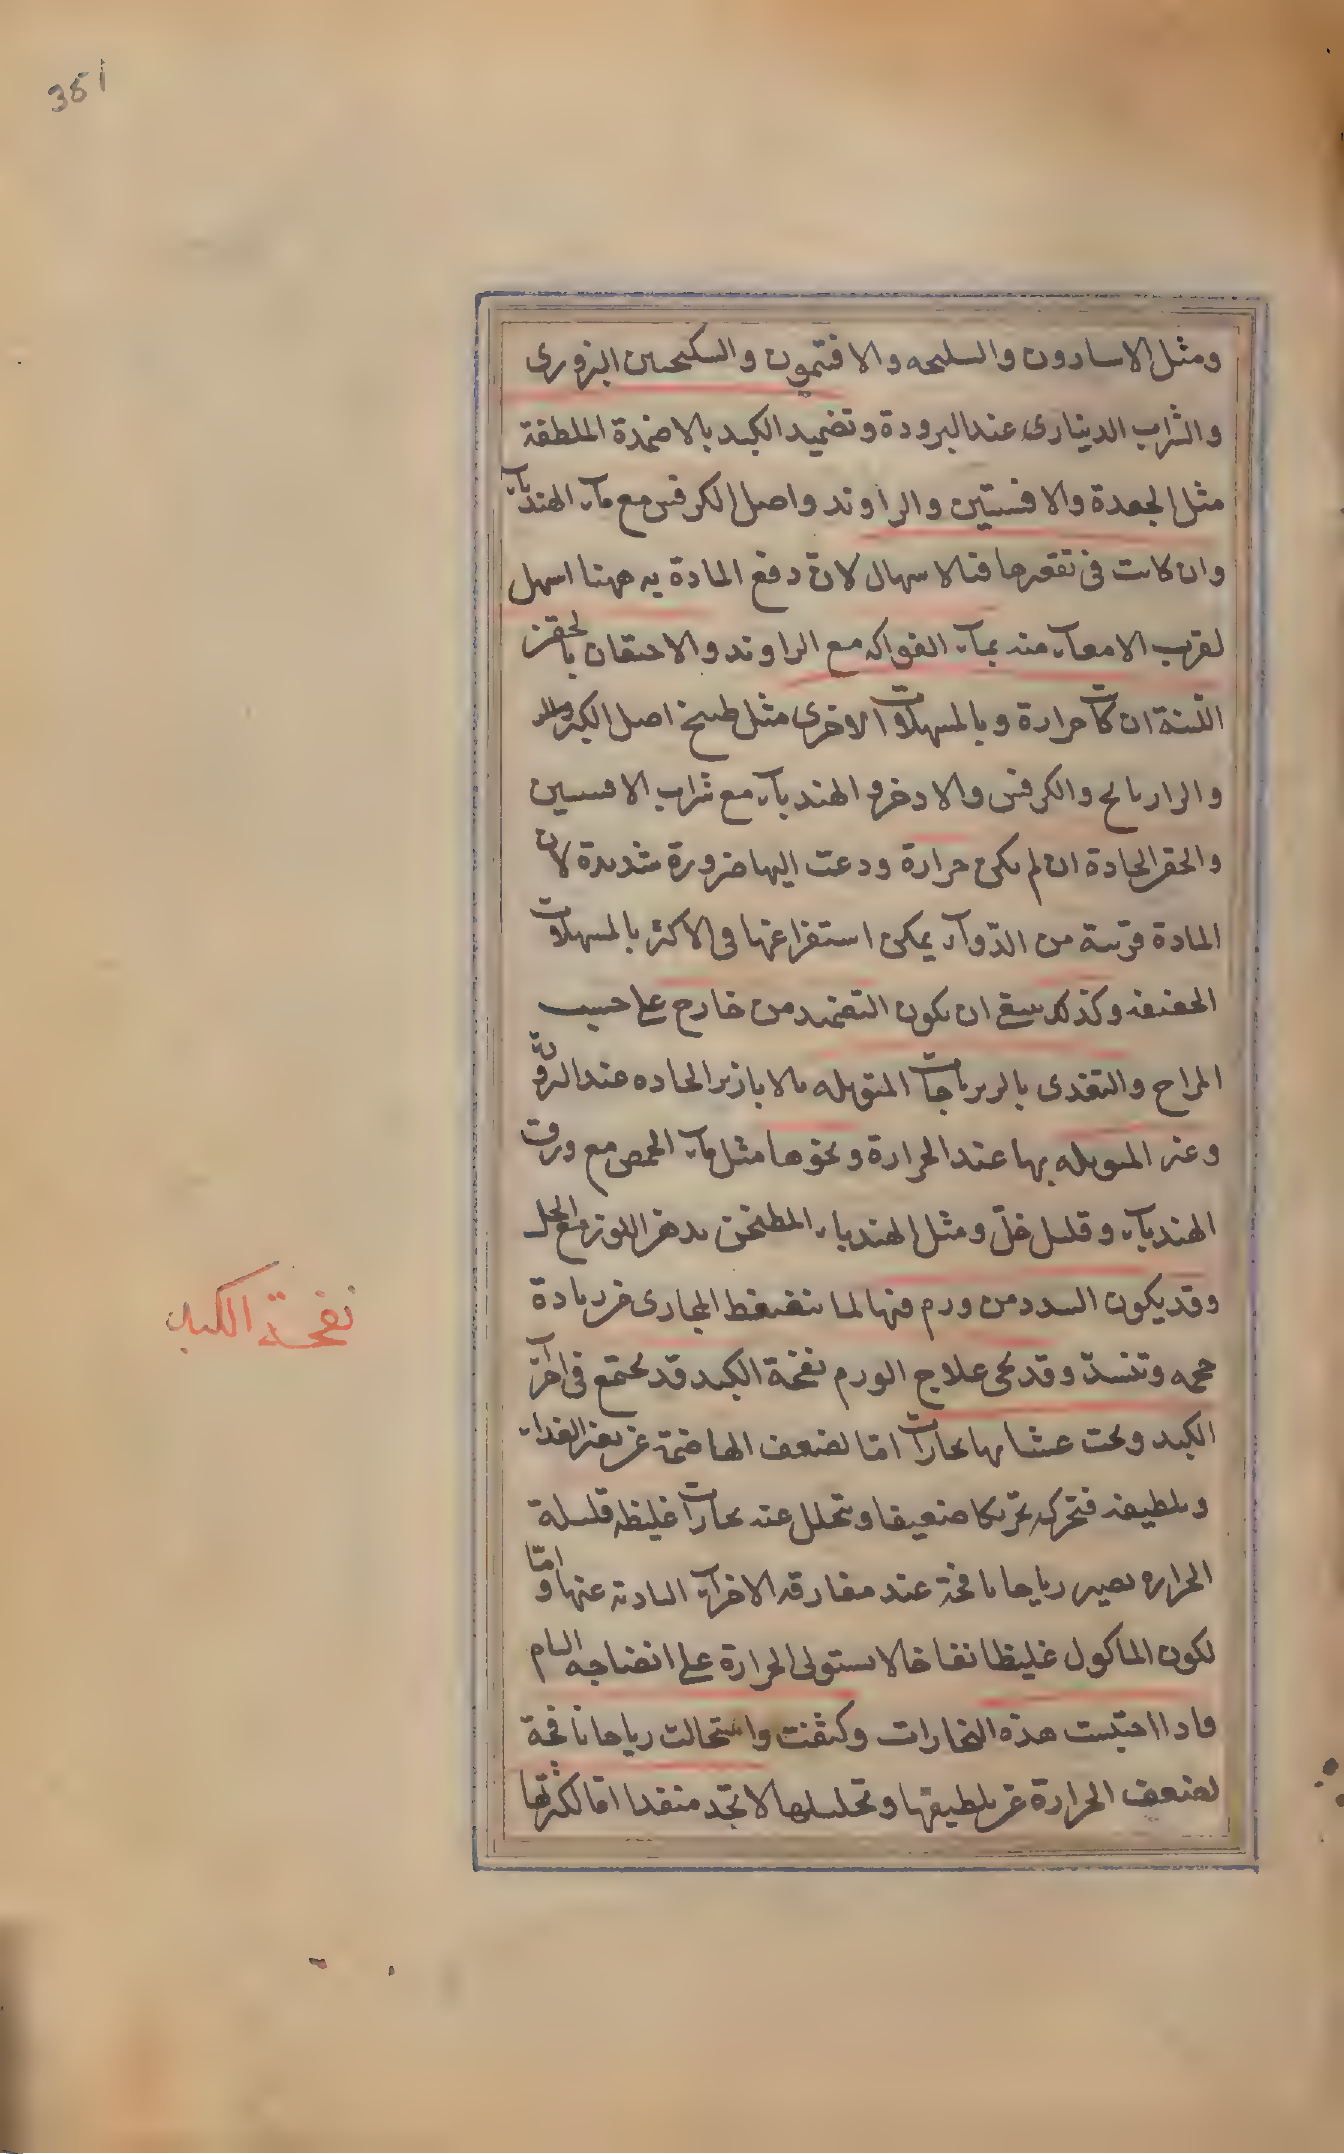 351
ومثل الاسارون والسليحه والافتيمون والسكنجبين البزورى
والشراب الدينارى عند البرودة وتضميد الكبد بالاضمدة الملطفة
مثل الجعدة والافسنتين والراوند واصل الكرفس مع مآء الهندبآء
وان كانت فى تقعرها فبالاسهال لان دفع المادة به ههنا اسهل
لقرب الامعآء منه بمآء الفواكه مع الراوند والاحتقان بالحقن
اللينة ان كانت حرارة وبالمسهلات الاخرى مثل طبيخ اصل الكبر
والرازيانج والكرفس والاذخر والهندبآء مع شراب الافسنتين
والحقن الحادة ان لم يكن حرارة ودعت اليها ضرورة شديدة لان
المادة قريبة من الدوآء يمكن استفراغها فى الاكثر بالمسهلات
الخفيفه وكذلك ينبغى ان يكون التضميد من خارج على حسب
المزاج والتغذى بالزيرباجات المتوبله بالابازير الحاده عند البرودة
وغير المتوبله بها عند الحرارة ونحوها مثل مآء الحمص مع ورق
الهندبآء وقليل خلّ ومثل الهندباء المطبخن بدهن اللوز مع الخل
وقد يكون السدد من ورم فيها لما ينضغط المجارى من زيادة
حجمه وتنسدّ وقد يجى علاج الورم نفخة الكبد قد يجتمع فى اجزآء
الكبد وتحت غشائها بخارات امّا لضعف الهاضمة عن هضم الغذاء
وتلطيفه فتحركه تحريكا ضعيفا ويتحلل عنه بخارات غليظه قليلة
الحراره يصير رياحا نافخة عند مفارقه الاجزآء النارية عنها وامّا
لكون الماكول غليظا نفاخا لا يستولى الحرارة على انضاجه التام
فاذا احتبست هذه البخارات وكثفت واستحالت رياحا نافخة
لضعف الحرارة عن تلطيفها وتحليلها لا تجد منفذا امّا لكثرتها
نفخة الكبد